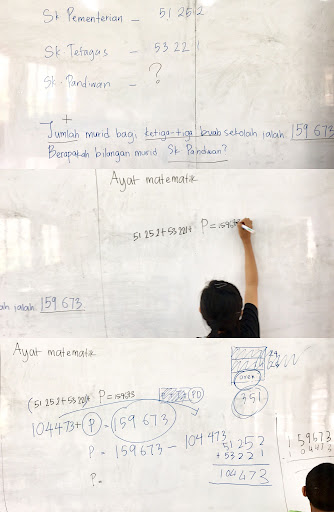 Sk Pementerian - 51 252
Sk Tetagas - 53 221
Sk Pandiwan - ?
+
Jumlah murid bagi ketiga-tiga buah sekolah ialah 159 673
Berapakah bilangan murid Sk Pandiwan?
Ayat matematik
51 252 + 53 221 + P = 159673
ah ialah 159 673
Ayat matematik
(51 252 + 53 221 + P = 159673
104473 + P = 159 673
P = 159673 - 104 473
P =
351
51 252
+ 53 221
104 473
159673
104473